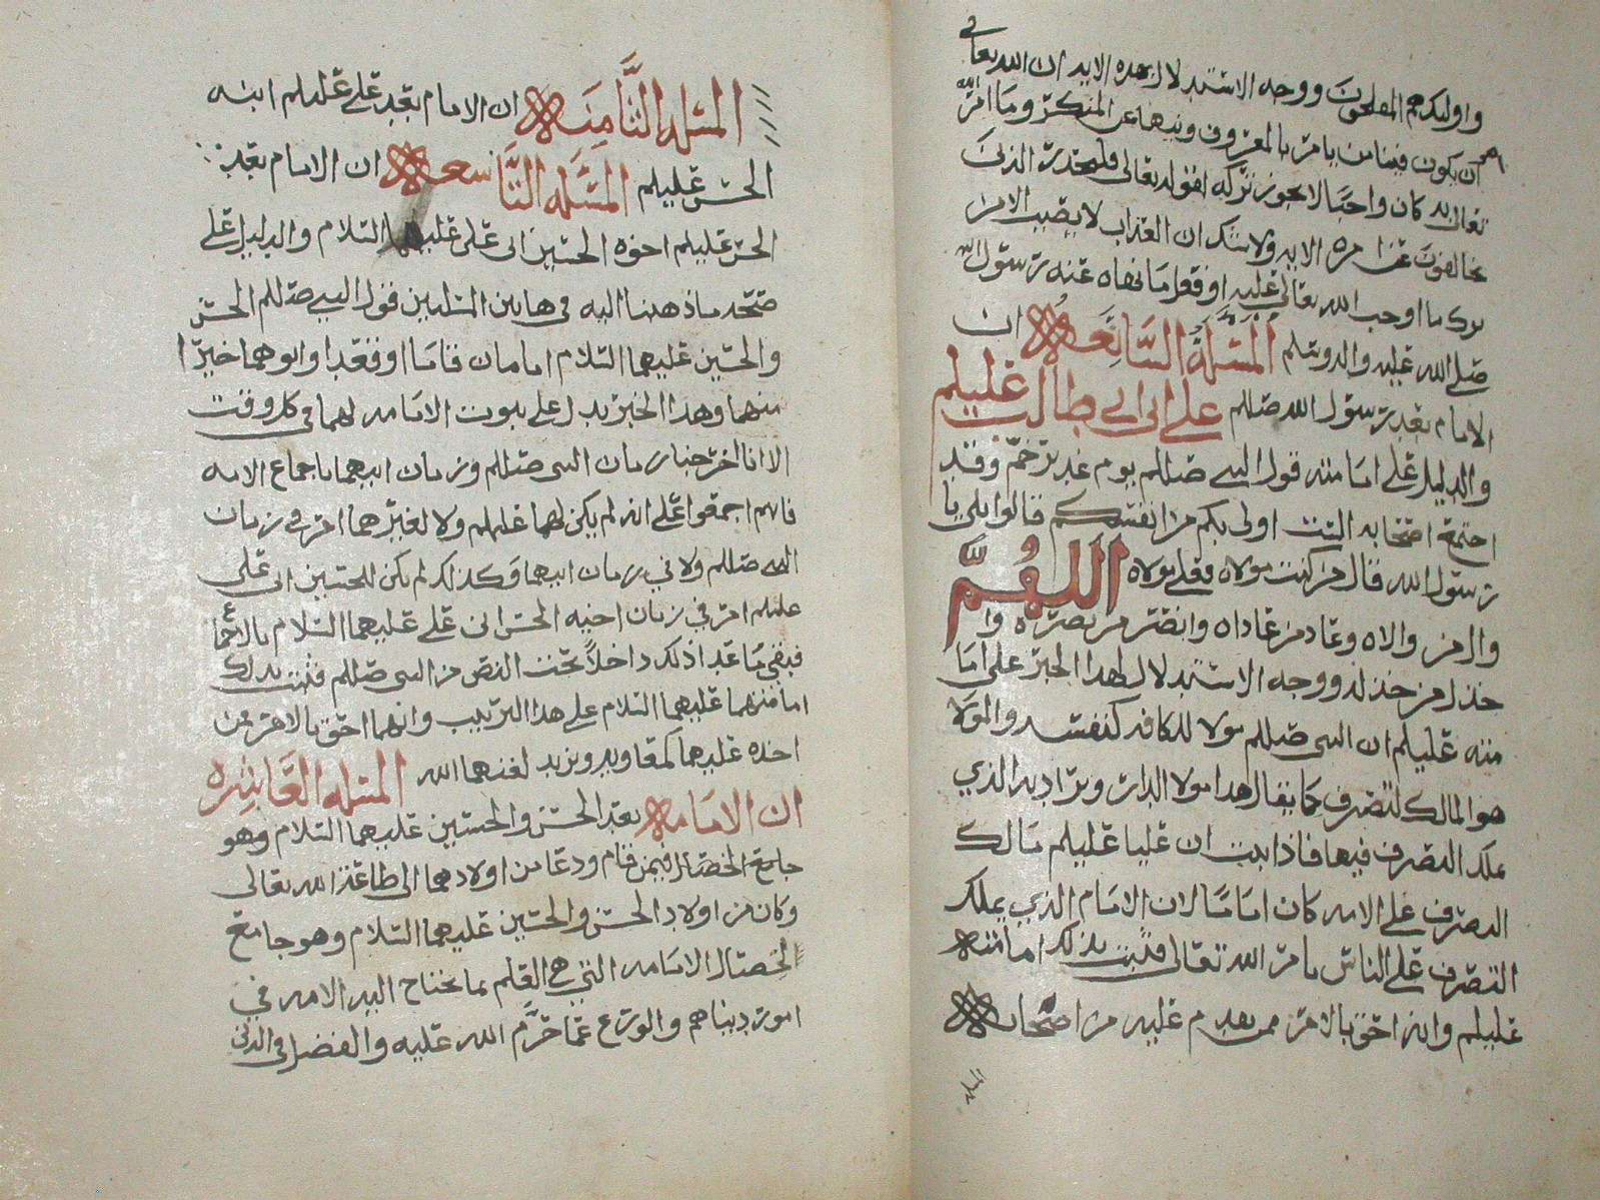 واولئك هم المفلحون ووجه الاستدلال بهذه الايه ان الله تعالى
امر ان يكون فينا من يامر بالمعروف وينها عن المنكر وما امر الله
تعالى به كان واجبا لا يجوز تركه لقوله تعالى فليحذر الذين
يخالفون عن امره الايه ولا شك ان العذاب لا يصيب الا من
ترك ما اوجب الله تعالى عليه او فعل ما نهاه عنه رسول الله
صلى الله عليه واله وسلم المسئلة السابعه ان
الامام بعد رسول الله صللم علي ابن ابي طالب عليلم
والدليل على امامته قول النبي صللم يوم غدير خم وقد
اجتمع اصحابه الست اولى بكم من انفسكم قالوا بلى يا
رسول الله قال من كنت مولاه فعلي مولاه اللهم
وال من والاه وعاد من عاداه وانصر من نصره وا
خذل من خذله ووجه الاستدلال بهذا الخبر على اما
مته عليلم ان النبي صللم مولا للكافه كنفسه والمولا
هو المالك للتصرف كما يقال هذا مولا الدار ويراد به الذي
يملك التصرف فيها فاذا ثبت ان عليا عليلم مالك
التصرف على الامه كان اماما لان الامام الذي يملك
التصرف على الناس بامر الله تعالى فثبت بذلك امامته
عليلم وانه احق بالامر ممن تقدم عليه من اصحابه
المسئله الثامنه ان الامام بعد علي عليلم ابنه
الحسن عليلم المسئله التاسعه ان الامام بعد
الحسن عليلم اخوه الحسين ابن علي عليهما السلام والدليل على
صحة ما ذهبنا اليه في هاتين المسئلتين قول النبي صللم الحسن
والحسين عليهما السلام امامان قاما او قعدا وابوهما خير
منهما وهذا الخبر يدل على ثبوت الامامه لهما في كل وقت
الا انا اخرجنا زمان النبي صللم وزمان ابيهما باجماع الامه
فانهم اجمعوا على انه لم يكن لهما عليهلم ولا لغيرهما امر في زمان
النبي صللم ولا في زمان ابيهما وكذلك لم يكن للحسين ابن علي
عليلم امر في زمان اخيه الحسن ابن علي عليهما السلام بالاجماع
فبقي ما عدا ذلك داخلا تحت النص من النبي صللم فثبت بذلك
امامتهما عليهما السلام على هذا الترتيب وانهما احق بالامر ممن
اخذه عليهما كمعاويه ويزيد لعنهما الله المسئله العاشره
ان الامامه بعد الحسن والحسين عليهما السلام وهو
جامع الخصال فيمن قام ودعا من اولادهما الى طاعة الله تعالى
وكان من اولاد الحسن والحسين عليهما السلام وهو جامع
لخصال الامامه التي هي العلم بما تحتاج اليه الامه في
امور دينهم والورع عما حرم الله عليه والفضل في الدين